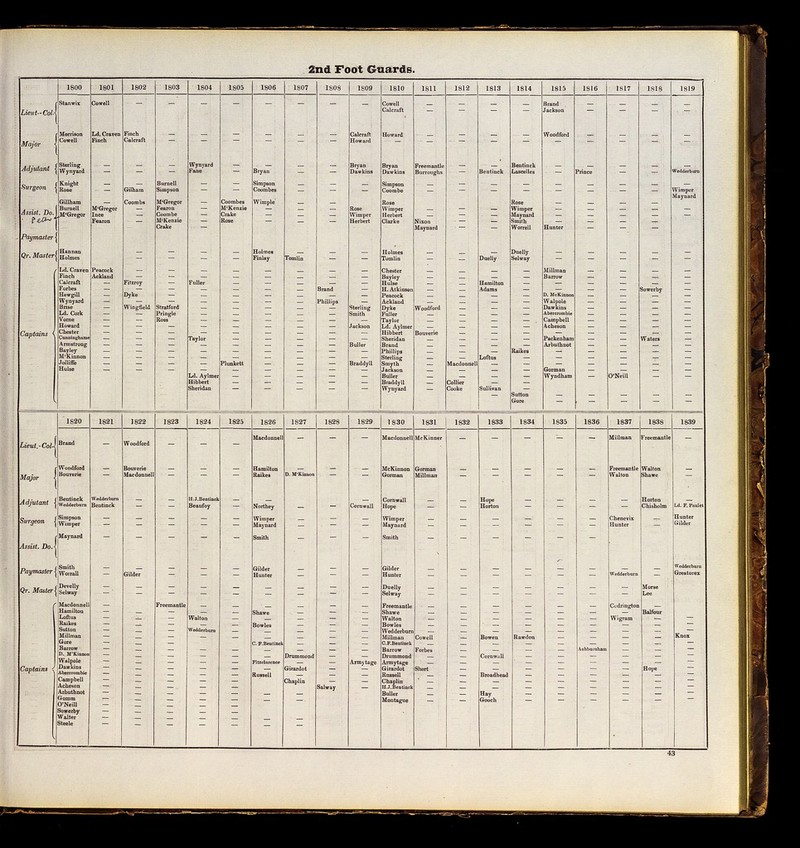 2nd Foot Guards.
1800 1801 1802 1803 1804 1805 1806 1807 1808 1809 1810 1811 1812 1813 1814 1815 1816 1817 1818 1819
Lieut.-Col. Stanwix Cowell — — — — — — — — Cowell — — — — Brand — — — —
Calcraft — — — — Jackson — — — —
Major Morrison Ld. Craven Finch — — — — — — Calcraft Howard — — — — Woodford — — — —
Cowell Finch Calcraft — — — — — — Howard — — — — — — — — — —
Adjutant Sterling — — — Wynyard — — — — Bryan Bryan Freemantle — — Bentinck — — — — —
Wynyard — — — Fane — Bryan — — Dawkins Dawkins Burroughs — Bentinck Lascelles — Prince — — Wedderburn
Surgeon Knight — — Burnell — — Simpson — — — Simpson — — — — — — — — —
Rose — Gilham Simpson — — Coombes — — — Coombe — — — — — — — — Wimper
Maynard
Assist. Do. Gillham — Coombs M'Gregor — Coombes Wimple — — — Rose — — — Rose — — — — —
Burnell M'Gregor — Fearon — M'Kenzie — — — Rose Wimper — — — Wimper — — — — —
M'Gregor Ince — Coombe — Crake — — — Wimper Herbert — — — Maynard — — — — —
Fearon — M'Kenzie — Rose — — — Herbert Clarke Nixon — — Smith — — — — —
Crake — Maynard — — Worrell Hunter — — — —
Paymaster
Qr. Master Hannan — — — — — Holmes — — — Holmes — — — Duelly — — — — —
Holmes — — — — — Finlay Tomlin — — Tomlin — — Duelly Selway — — — — —
Captains Ld. Craven Peacock — — — — — — — — Chester — — — — Millman — — — —
Finch Ackland — — — — — — — — Bayley — — — — Barrow — — — —
Calcraft — Fitzroy — Fuller — — — — — Hulse — — Hamilton — — — — — —
Forbes — — — — — — — Brand — H. Atkinson — — Adams — — — — Sowerby —
Hewgill — Dyke — — — — — — — Peacock — — — — D. McKinnon — — — —
Wynyard — — — — — — — Phillips — Ackland — — — — Walpole — — — —
Brise — Wingfield Stratford — — — — — Sterling Dyke Woodford — — — Dawkins — — — —
Ld. Cork — — Pringle — — — — — Smith Fuller — — — — Abercrombie — — — —
Verno — — Ross — — — — — — Taylor — — — — Campbell — — — —
Howard — — — — — — — — Jackson Ld. Aylmer — — — — Acheson — — — —
Chester — — — — — — — — — Hibbert Bouverie — — — — — — — —
Cunninghame — — — Taylor — — — — — Sheridan — — — — Packenham — — Waters —
Armstrong — — — — — — — — Buller Brand — — — — Arbuthnot — — — —
Bayley — — — — — — — — — Phillips — — — Raikes — — — — —
M'Kinnon — — — — — — — — — Sterling — — Loftus — — — — — —
Jolliffe — — — — Plunkett — — — Braddyll Smyth — Macdonnell — — — — — — —
Hulse — — — — — — — — — Jackson — — — — Gorman — — — —
Ld. Aylmer — — — — — Buller — — — — Wyndham — O'Neill — —
Hibbert — — — — — Braddyll — Collier — — — — — — —
Sheridan — — — — — Wynyard — Cooke Sullivan — — — — — —
Sutton — — — — —
Gore — — — — —
1820 1821 1822 1823 1824 1825 1826 1827 1828 1829 1830 1831 1832 1833 1834 1835 1836 1837 1838 1839
Lieut.-Col. Brand — Woodford — — — Macdonnell — — — Macdonnell McKinner — — — — — Millman Freemantle
Major Woodford — Bouverie — — — Hamilton — — — McKinnon Gorman — — — — — Freemantle Walton —
Bouverie — Macdonnell — — — Raikes D. M'Kinnon — — Gorman Millman — — — — — Walton Shawe —
Adjutant Bentinck Wedderburn — — H.J. Bentinck — — — — — Cornwall — — Hope — — — — Horton —
Wedderburn Bentinck — — Beaufoy — Northey — — Cornwall Hope — — Horton — — — — Chisholm Ld. F. Paulet
Surgeon Simpson — — — — — Wimper — — — Wimper — — — — — — Chenevix — Hunter
Wimper — — — — — Maynard — — — Maynard — — — — — — Hunter — Gilder
Assist. Do. Maynard — — — — — Smith — — — Smith — — — — — — — — —
Paymaster Smith — — — — — Gilder — — — Gilder — — — — — — — — Wedderburn
Worrall — Gilder — — — Hunter — — — Hunter — — — — — — Wedderburn — Greatorex
Qr. Master Develly — — — — — — — — — Duelly — — — — — — — Morse —
Selway — — — — — — — — — Selway — — — — — — — Lee —
Captains Macdonnell — — Freemantle — — — — — — Freemantle — — — — — — Codrington — —
Hamilton — — — — — Shawe — — — Shawe — — — — — — — Balfour —
Loftus — — — Walton — — — — — Walton — — — — — — Wigram — —
Raikes — — — — — Bowles — — — Bowles — — — — — — — — —
Sutton — — — Wedderburn — — — — — Wedderburn — — — — — — — — —
Millman — — — — — — — — — Millman Cowell — Bowen Rawdon — — — — Knox
Gore — — — — — C. F. Bentinck — — — C.F. Bentinck — — — — — — — — —
Barrow — — — — — — — — — Barrow Forbes — — — — Ashburnham — — —
D. M'Kinnon — — — — — — Drummond — — Drummond — — Cornwall — — — — — —
Walpole — — — — — Fitzclarence — — Armytage Armytage — — — — — — — — —
Dawkins — — — — — — Girardot — — Girardot Short — — — — — — Hope —
Abercrombie — — — — — Russell — — — Russell — — Broadhead — — — — — —
Campbell — — — — — — Chaplin — — Chaplin — — — — — — — — —
Acheson — — — — — — — Salway — H.J. Bentinck — — — — — — — — —
Arbuthnot — — — — — — — — — Buller — — Hay — — — — — —
Gomm — — — — — — — — — Montague — — Gooch — — — — — —
O'Neill — — — — —
Sowerby — — — — —
Walter — — — — — — —
Steele — — — — —
43